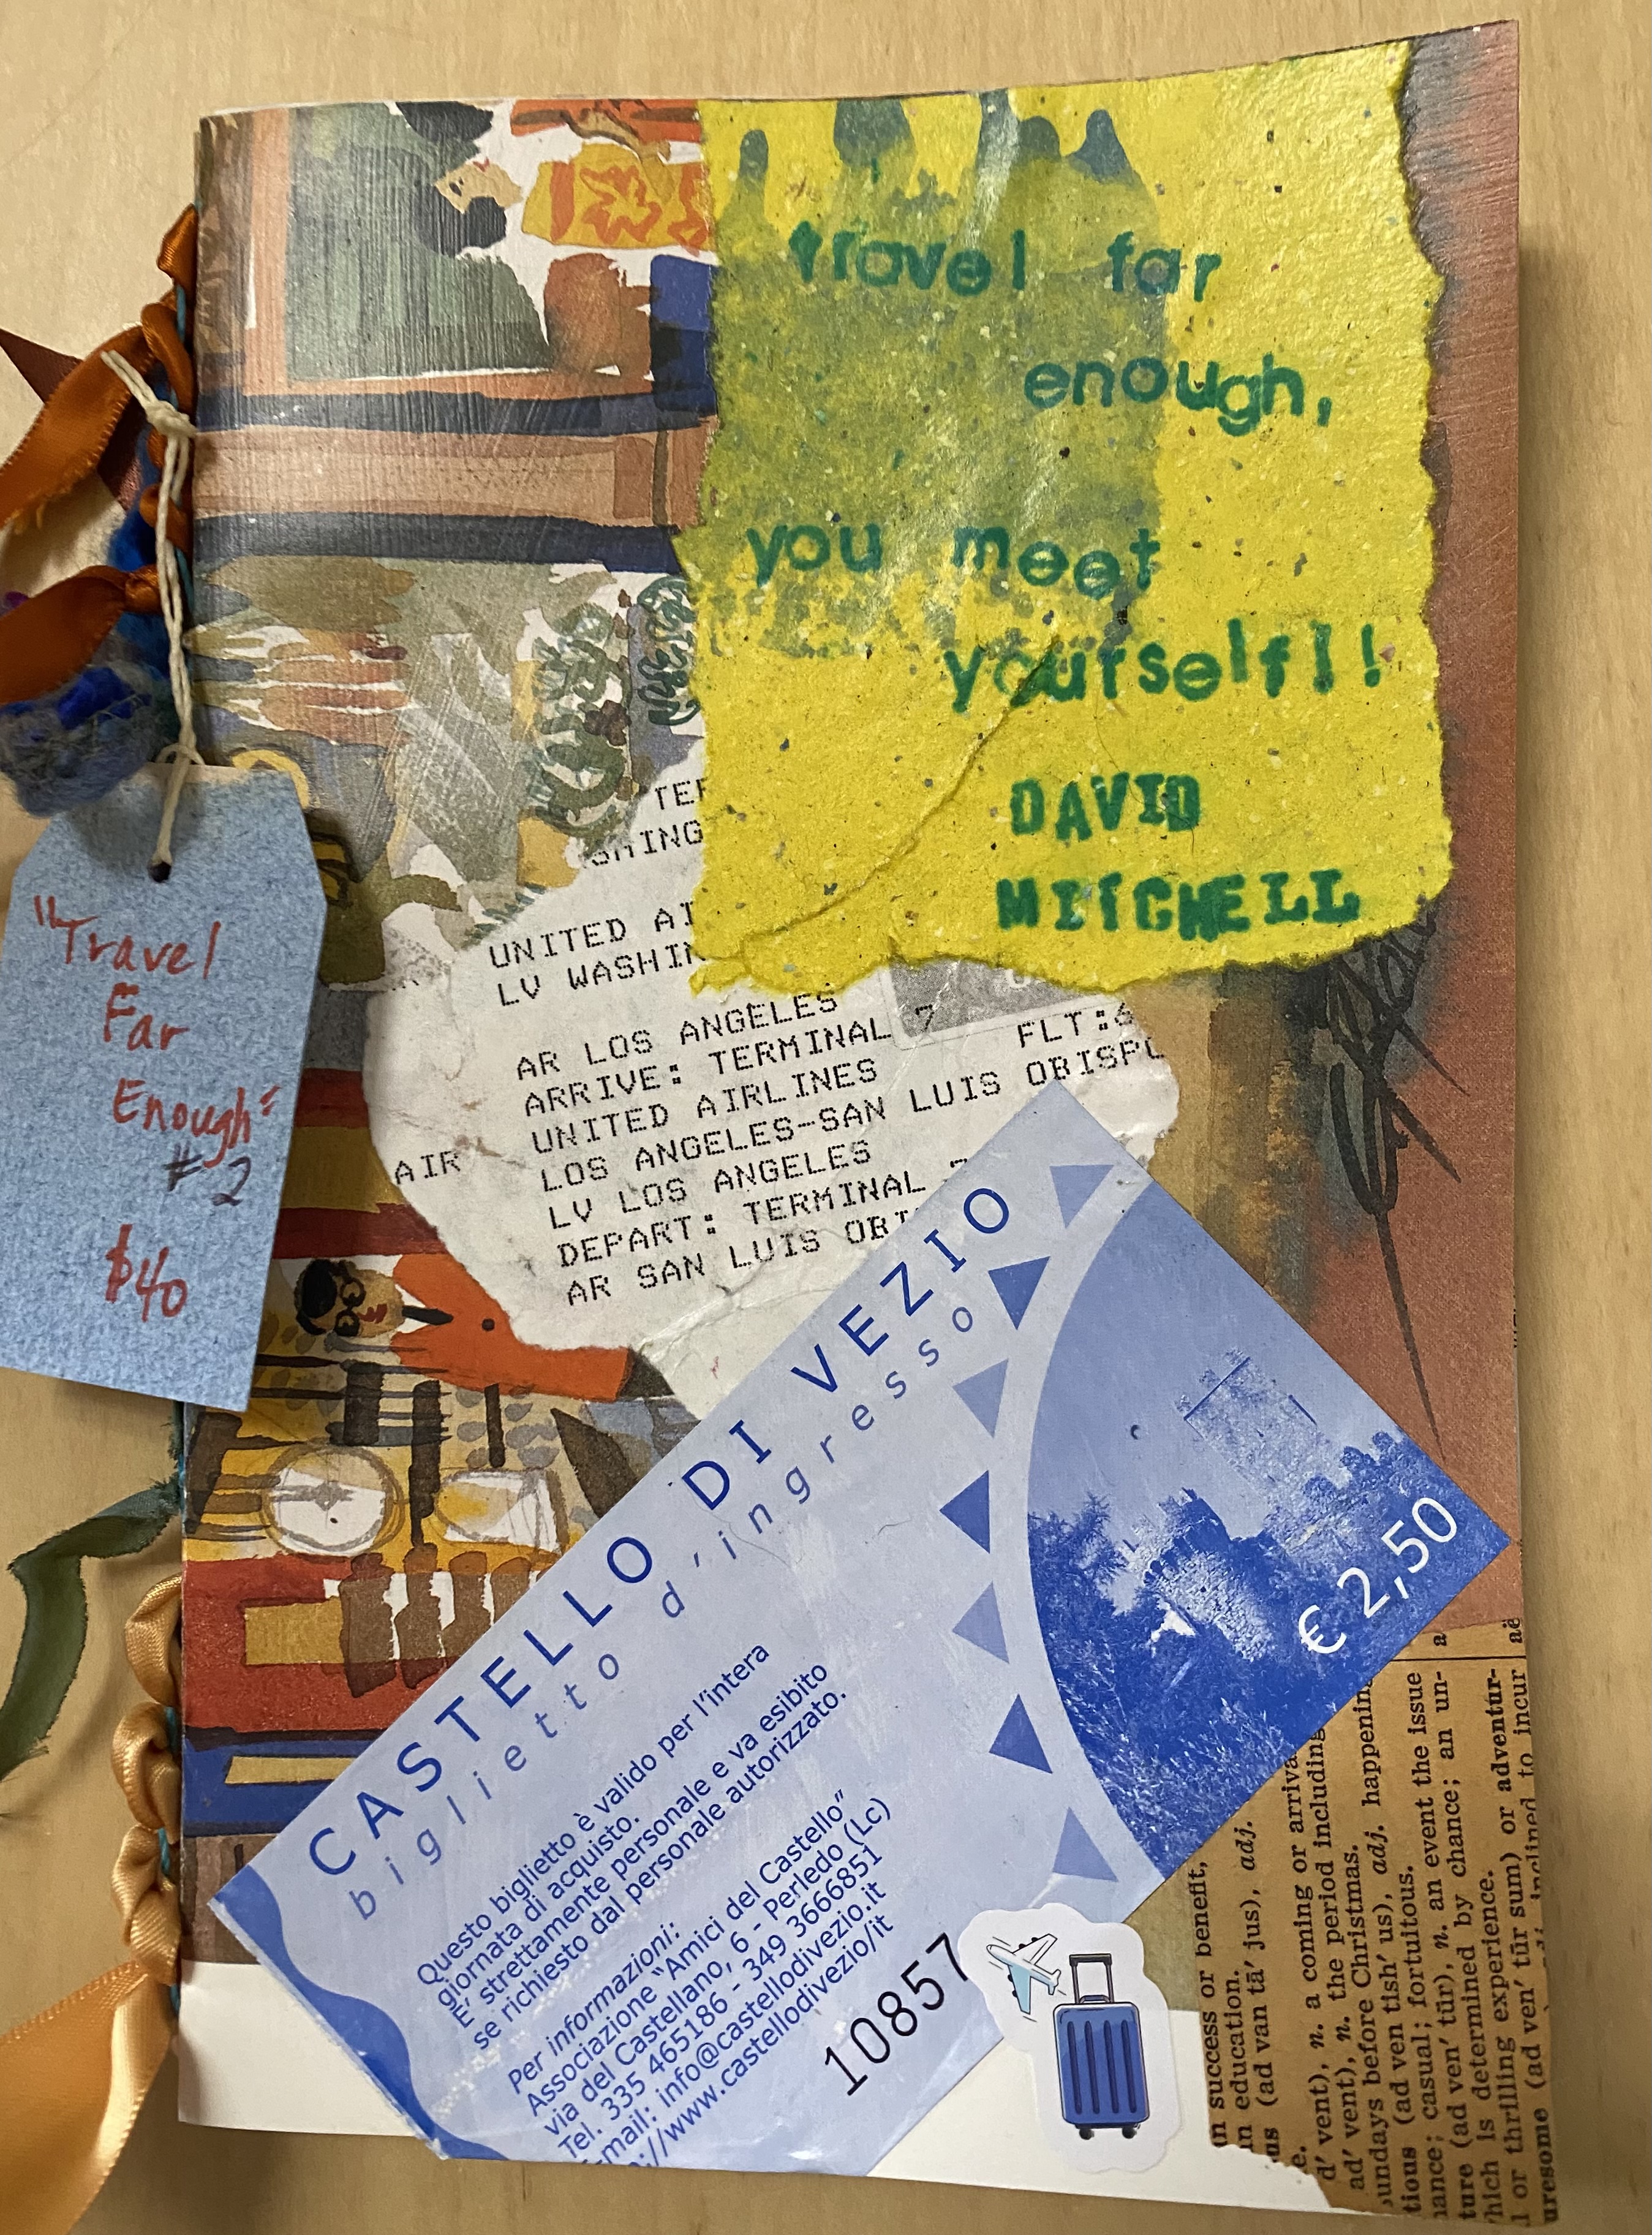 travel far
enough,
you meet
yourself!!
DAVID
MITCHELL
"Travel
Far
Enough"
#2
$40
UNITED
LV
AR LOS ANGELES
ARRIVE: TERMINAL 7
UNITED AIRLINES FLT:
AIR LOS ANGELES-SAN LUIS
LV LOS ANGELES
DEPART: TERMINAL
AR SAN LUIS
CASTELLO DI VEZIO
biglietto d'ingresso
Questo biglietto è valido per l'intera
giornata di acquisto.
E' strettamente personale e va esibito
se richiesto dal personale autorizzato.
Per informazioni:
Associazione "Amici del Castello"
via del Castellano, 6 - Perledo (Lc)
Tel. 335 465186 - 349 3666851
info@castellodivezio.it
www.castellodivezio/it
10857
€ 2,50
success or benefit,
in education.
(ad van tā′ jus), adj.
vent), n. a coming or
ad′ vent), n. the period including
before Christmas.
(ad ven tish′ us), adj. happening
casual; fortuitous.
(ad ven′ tūr), n. an event the issue
is determined by chance; an un-
or thrilling experience.
(ad ven′ tūr sum) or adventur-
inclined to incur